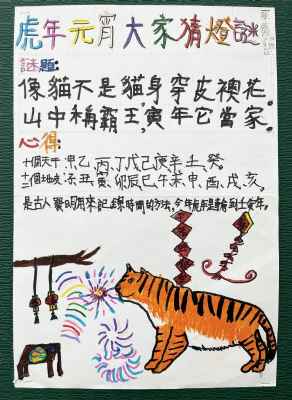 虎年元宵大家猜燈謎
謎題:
像貓不是貓身穿皮襖花。
山中稱霸王,寅年它當家。
心得:
十個天干:甲、乙、丙、丁戊己庚辛壬癸。
十二個地支:子、丑、寅、卯辰巳午未申、酉、戌、亥,
是古人發明用來記錄時間的方法,今年